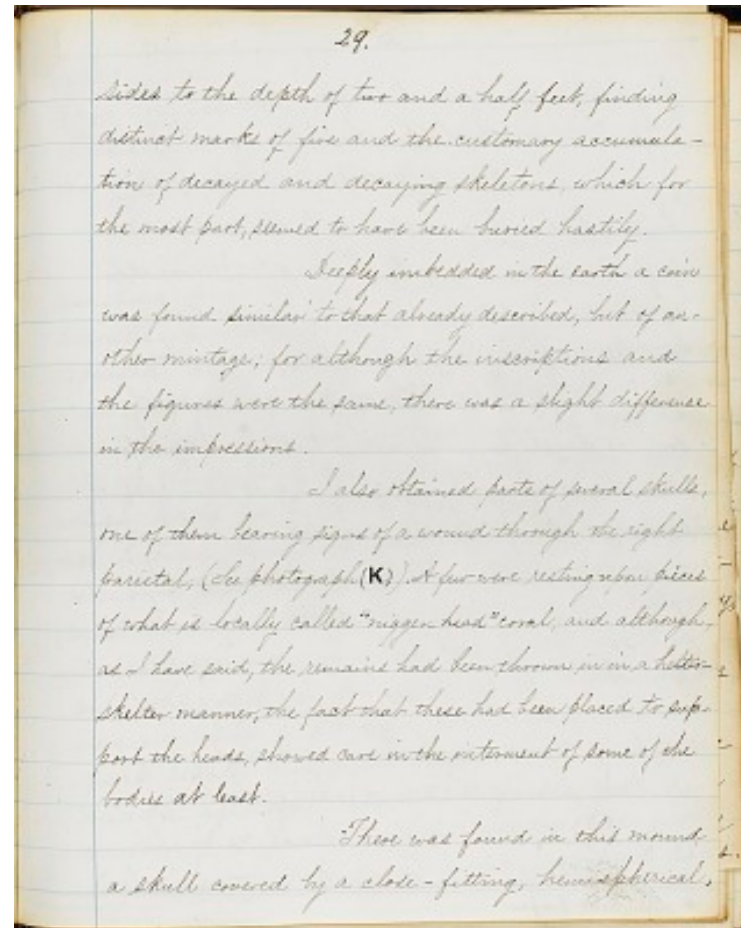 29.
sides to the depth of two and a half feet, finding
distinct marks of fire and the customary accumula-
tion of decayed and decaying skeletons, which for
the most part, seemed to have been buried hastily.
Deeply imbedded in the earth a coin
was found similar to that already described, but of an-
other mintage; for although the inscriptions and
the figures were the same, there was a slight difference
in the impressions.
I also obtained parts of several skulls,
one of them bearing signs of a wound through the right
parietal, (See photograph (K)). A few were resting upon pieces
of what is locally called "nigger head" coral, and although,
as I have said, the remains had been thrown in in a helter-
skelter manner, the fact that these had been placed to sup-
port the heads, showed care in the interment of some of the
bodies at least.
There was found in this mound
a skull covered by a close-fitting, hemispherical,